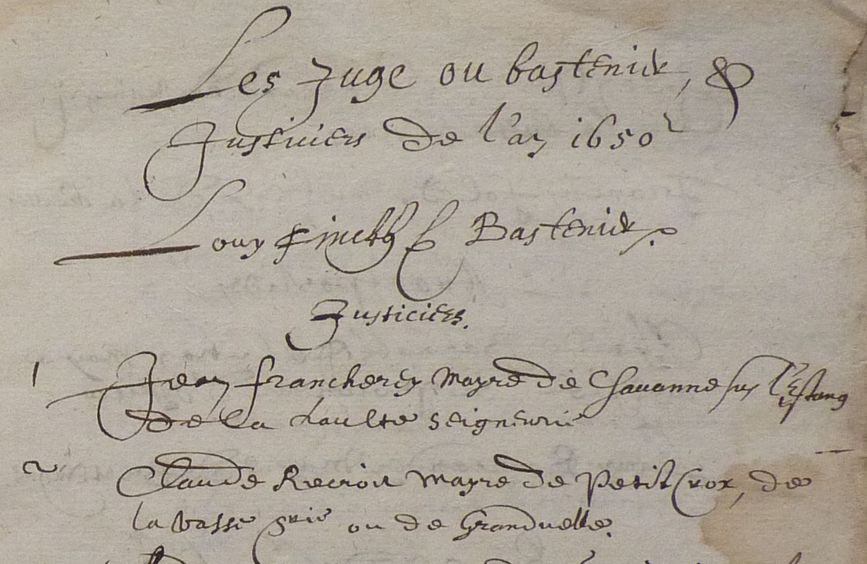 Les Juge ou bastenier, &
Justiciers de l'an 1650
Louy Bastenier.
Justiciers.
1 Jean francherey mayre de Chavanne sus l'Estang
de la haulte seigneurie
2 Claude Recroit mayre de Petit Crox, de
la basse grie ou de Granduelle.